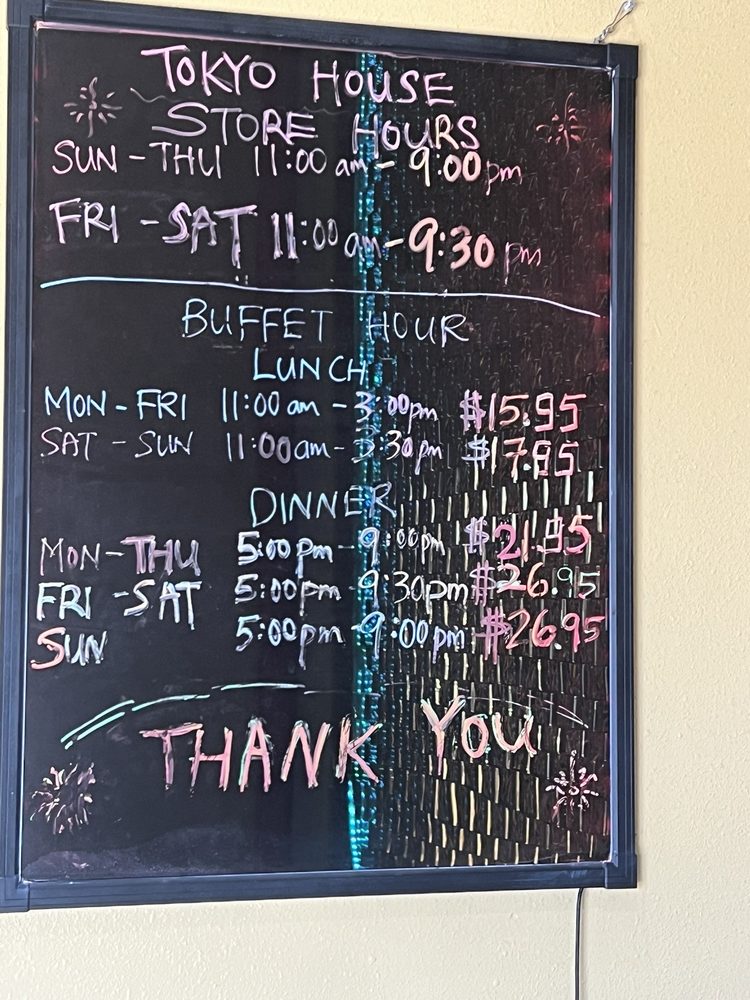 TOKYO HOUSE
STORE HOURS
SUN - THU 11:00 am - 9:00 pm
FRI - SAT 11:00 am - 9:30 pm
BUFFET HOUR
LUNCH
MON - FRI 11:00 am - 3:00pm $15.95
SAT - SUN 11:00am - 3:30pm $17.95
DINNER
MON - THU 5:00pm - 9:00pm $21.95
FRI - SAT 5:00pm - 9:30pm $26.95
SUN 5:00pm - 9:00pm $26.95
THANK YOU